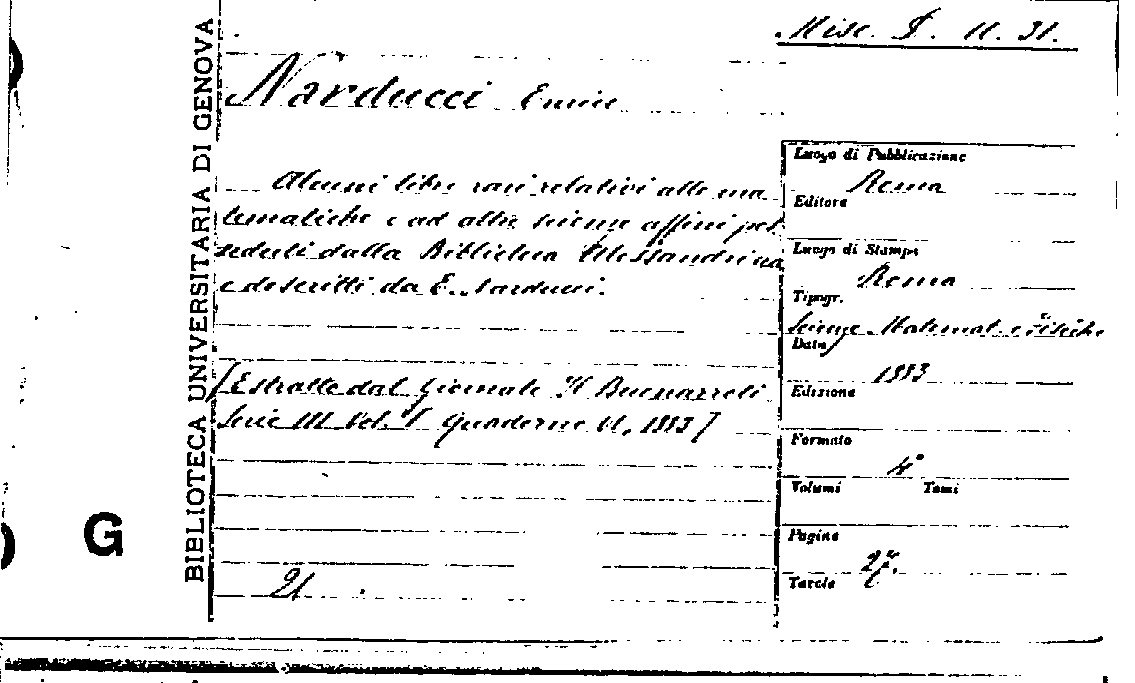 Misc. I. 11. 31.
BIBLIOTECA UNIVERSITARIA DI GENOVA
Narducci Enrico
Alcuni libri rari relativi alle ma
tematiche e ad altre scienze affini pos
seduti dalla Biblioteca Alessandrina
e descritti da E. Narducci.
[Estratto dal Giornale Il Buonarroti
Serie III Vol. I Quaderno VI, 1883]
21
Luogo di Pubblicazione
Roma
Editore
Luogo di Stampa
Roma
Tipogr.
Scienze Matemat. e Fisiche
Data
1883
Edizione
Formato
4°
Volumi Tomi
Pagine
27.
Tavole
G